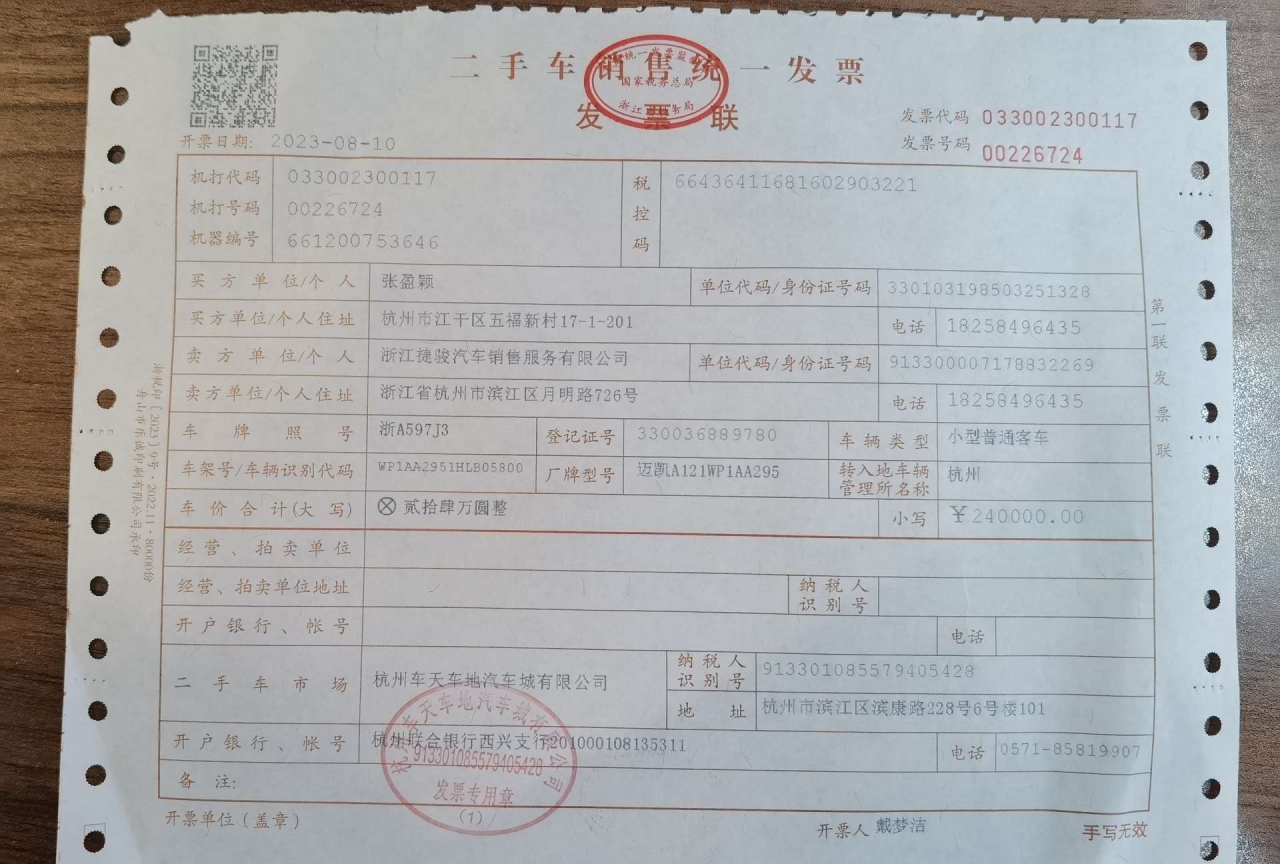 二手车销售统一发票
发票联
统一发票监
国家税务总局
浙江 务局
开票日期: 2023-08-10
发票代码 033002300117
发票号码 00226724
机打代码 033002300117
机打号码 00226724
机器编号 661200753646
税控码 66436411681602903221
买方单位/个人 张盈颖 单位代码/身份证号码 330103198503251328
买方单位/个人住址 杭州市江干区五福新村17-1-201 电话 18258496435
卖方单位/个人 浙江捷骏汽车销售服务有限公司 单位代码/身份证号码 913300007178832269
卖方单位/个人住址 浙江省杭州市滨江区月明路726号 电话 18258496435
车牌照号 浙A597J3 登记证号 330036889780 车辆类型 小型普通客车
车架号/车辆识别代码 WP1AA2951HLB05800 厂牌型号 迈凯A121WP1AA295 转入地车辆管理所名称 杭州
车价合计(大写) ⊗ 贰拾肆万圆整 小写 ¥240000.00
经营、拍卖单位
经营、拍卖单位地址 纳税人识别号
开户银行、帐号 电话
二手车市场 杭州车天车地汽车城有限公司 纳税人识别号 913301085579405428
地址 杭州市滨江区滨康路228号6号楼101
开户银行、帐号 杭州联合银行西兴支行201000108135311 电话 0571-85819907
备注:
杭州车天车地汽车城有限公司
913301085579405428
发票专用章
(1)
开票单位(盖章) 开票人 戴梦洁 手写无效
第一联 发票联
浙税印[2023]9号·2022.11·80000份
舟山市乐诚印刷有限公司承印